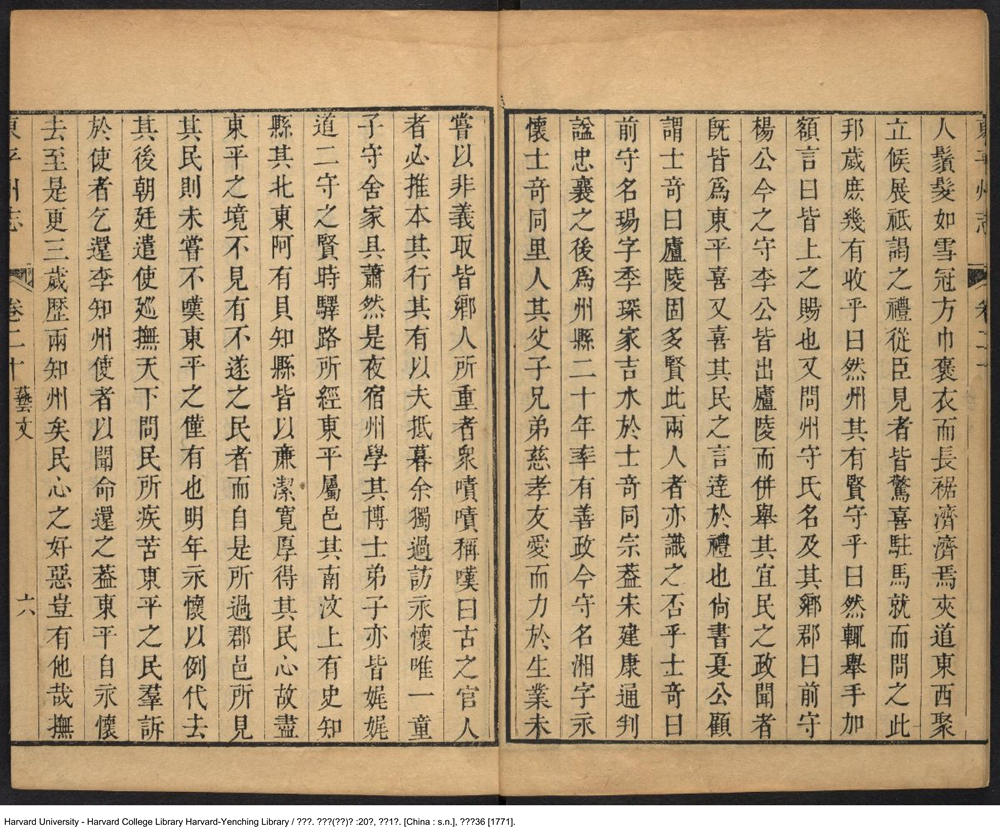 東平州志
卷二十
人鬚髮如雪冠方巾褒衣而長裾濟濟焉夾道東西聚
立候展祗謁之禮從臣見者皆驚喜駐馬就而問之此
邦歲庶幾有收乎曰然州其有賢守乎曰然輒舉手加
額言曰皆上之賜也又問州守氏名及其鄉郡曰前守
楊公今之守李公皆出廬陵而併舉其宜民之政聞者
旣皆爲東平喜又喜其民之言達於禮也尙書夏公顧
謂士奇曰廬陵固多賢此兩人者亦識之否乎士奇曰
前守名瑒字季琛家吉水於士奇同宗葢宋建康通判
諡忠襄之後爲州縣二十年率有善政今守名湘字永
懷士奇同里人其父子兄弟慈孝友愛而力於生業未
嘗以非義取皆鄉人所重者衆嘖嘖稱嘆曰古之官人
者必推本其行其有以夫抵暮余獨過訪永懷唯一童
子守舍家具蕭然是夜宿州學其博士弟子亦皆娓娓
道二守之賢時驛路所經東平屬邑其南汶上有史知
縣其北東阿有貝知縣皆以亷潔寬厚得其民心故盡
東平之境不見有不遂之民者而自是所過郡邑所見
其民則未嘗不嘆東平之僅有也明年永懷以例代去
其後朝廷遣使廵撫天下問民所疾苦東平之民羣訴
於使者乞還李知州使者以聞命還之葢東平自永懷
去至是更三歲歷兩知州矣民心之好惡豈有他哉撫
東平州志
卷二十
藝文
六
Harvard University - Harvard College Library Harvard-Yenching Library / ???. ???(??)? :20?, ??1?. [China : s.n.], ???36 [1771].